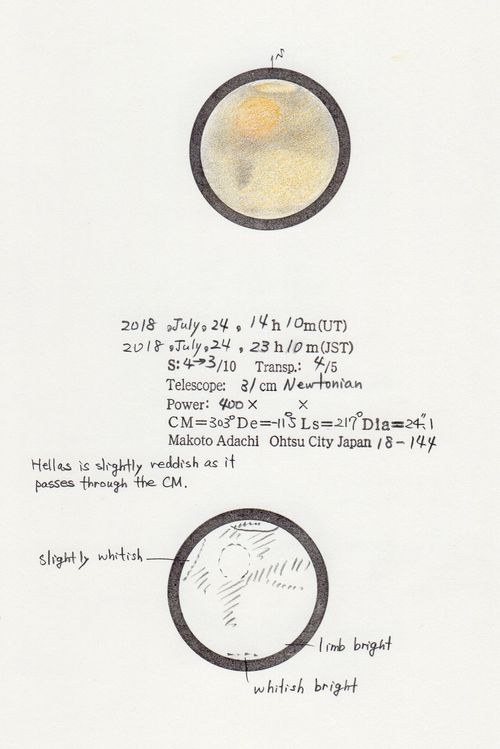 S
2018 July, 24, 14h 10m(UT)
2018 July, 24, 23h 10m(JST)
S: 4→3/10 Transp.: 4/5
Telescope: 31cm Newtonian
Power: 400× ×
CM=303° De=-11°S Ls=217° Dia=24"1
Makoto Adachi Ohtsu City Japan 18-144
Hellas is slightly reddish as it
passes through the CM.
slightly whitish
limb bright
whitish bright